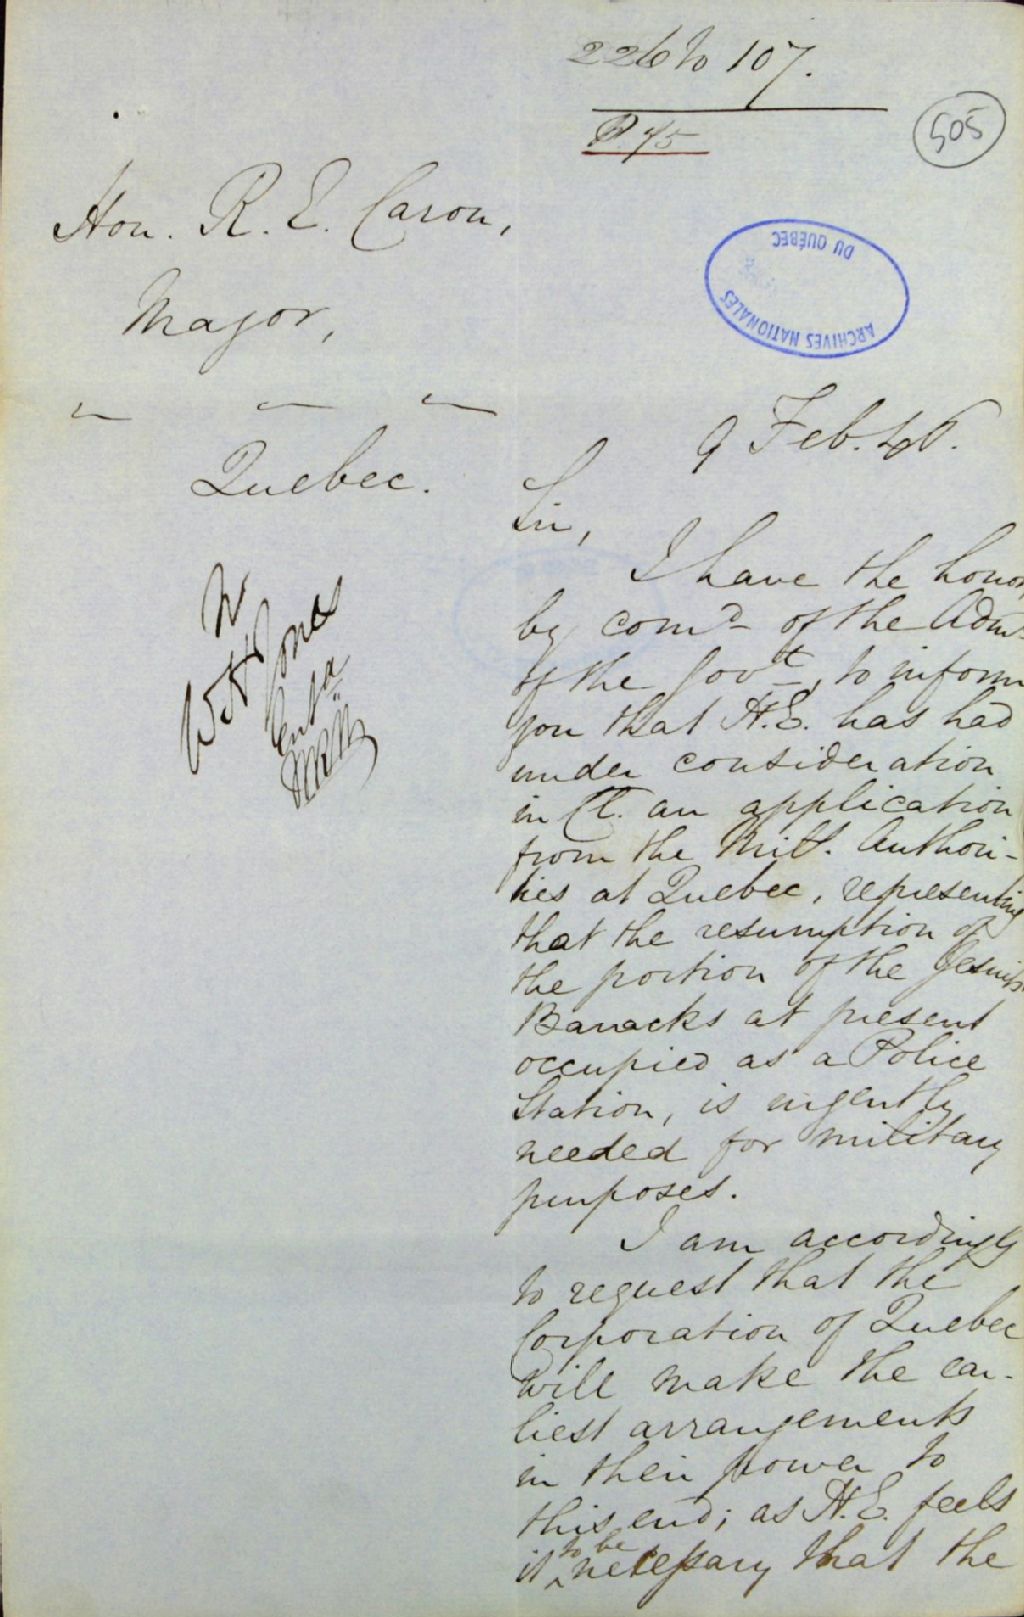 226 to 107.
P 45
505
Hon. R. E. Caron,
Mayor,
Quebec.
ARCHIVES NATIONALES
DU QUÉBEC
9 Feb. 46.
Sir,
I have the honor,
by comd of the Adm
of the Govt, to inform
you that H.E. has had
under consideration
in Cl. an application
from the Milt. Authori-
ties at Quebec, representing
that the resumption of
the portion of the Jesuits
Barracks at present
occupied as a Police
Station, is urgently
needed for military
purposes.
I am accordingly
to request that the
Corporation of Quebec
will make the ear-
liest arrangements
in their power to
this end; as H.E. feels
it to be necessary that the
W H Jones